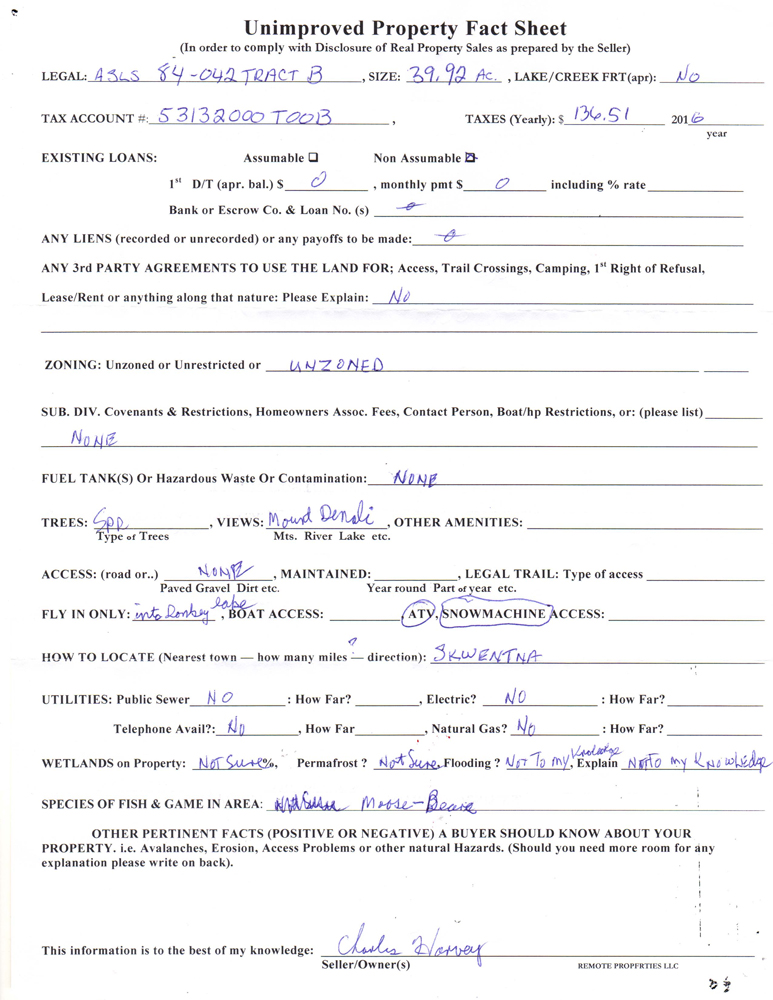 Unimproved Property Fact Sheet
(In order to comply with Disclosure of Real Property Sales as prepared by the Seller)
LEGAL: ASLS 84-042 TRACT B, SIZE: 39.92 Ac., LAKE/CREEK FRT(apr): No
TAX ACCOUNT #: 53132000 T00B, TAXES (Yearly): $ 136.51 2016
year
EXISTING LOANS: Assumable ☐ Non Assumable ☒
1st D/T (apr. bal.) $ 0, monthly pmt $ 0 including % rate
Bank or Escrow Co. & Loan No. (s) 0
ANY LIENS (recorded or unrecorded) or any payoffs to be made: 0
ANY 3rd PARTY AGREEMENTS TO USE THE LAND FOR; Access, Trail Crossings, Camping, 1st Right of Refusal,
Lease/Rent or anything along that nature: Please Explain: No
ZONING: Unzoned or Unrestricted or UNZONED
SUB. DIV. Covenants & Restrictions, Homeowners Assoc. Fees, Contact Person, Boat/hp Restrictions, or: (please list)
NONE
FUEL TANK(S) Or Hazardous Waste Or Contamination: NONE
TREES: , VIEWS: Mount Denali, OTHER AMENITIES:
Type of Trees Mts. River Lake etc.
ACCESS: (road or..) NONE, MAINTAINED: , LEGAL TRAIL: Type of access
Paved Gravel Dirt etc. Year round Part of year etc.
FLY IN ONLY: into Donkey lake, BOAT ACCESS: , ATV, SNOWMACHINE ACCESS:
HOW TO LOCATE (Nearest town — how many miles ? — direction): SKWENTNA
UTILITIES: Public Sewer NO : How Far? , Electric? NO : How Far?
Telephone Avail?: No, How Far , Natural Gas? No : How Far?
WETLANDS on Property: Not Sure%, Permafrost ? Not Sure, Flooding ? Not To my Knowledge, Explain Not to my Knowledge
SPECIES OF FISH & GAME IN AREA: Moose-Bears
OTHER PERTINENT FACTS (POSITIVE OR NEGATIVE) A BUYER SHOULD KNOW ABOUT YOUR
PROPERTY. i.e. Avalanches, Erosion, Access Problems or other natural Hazards. (Should you need more room for any
explanation please write on back).
This information is to the best of my knowledge: Charles Harvey
Seller/Owner(s) REMOTE PROPERTIES LLC